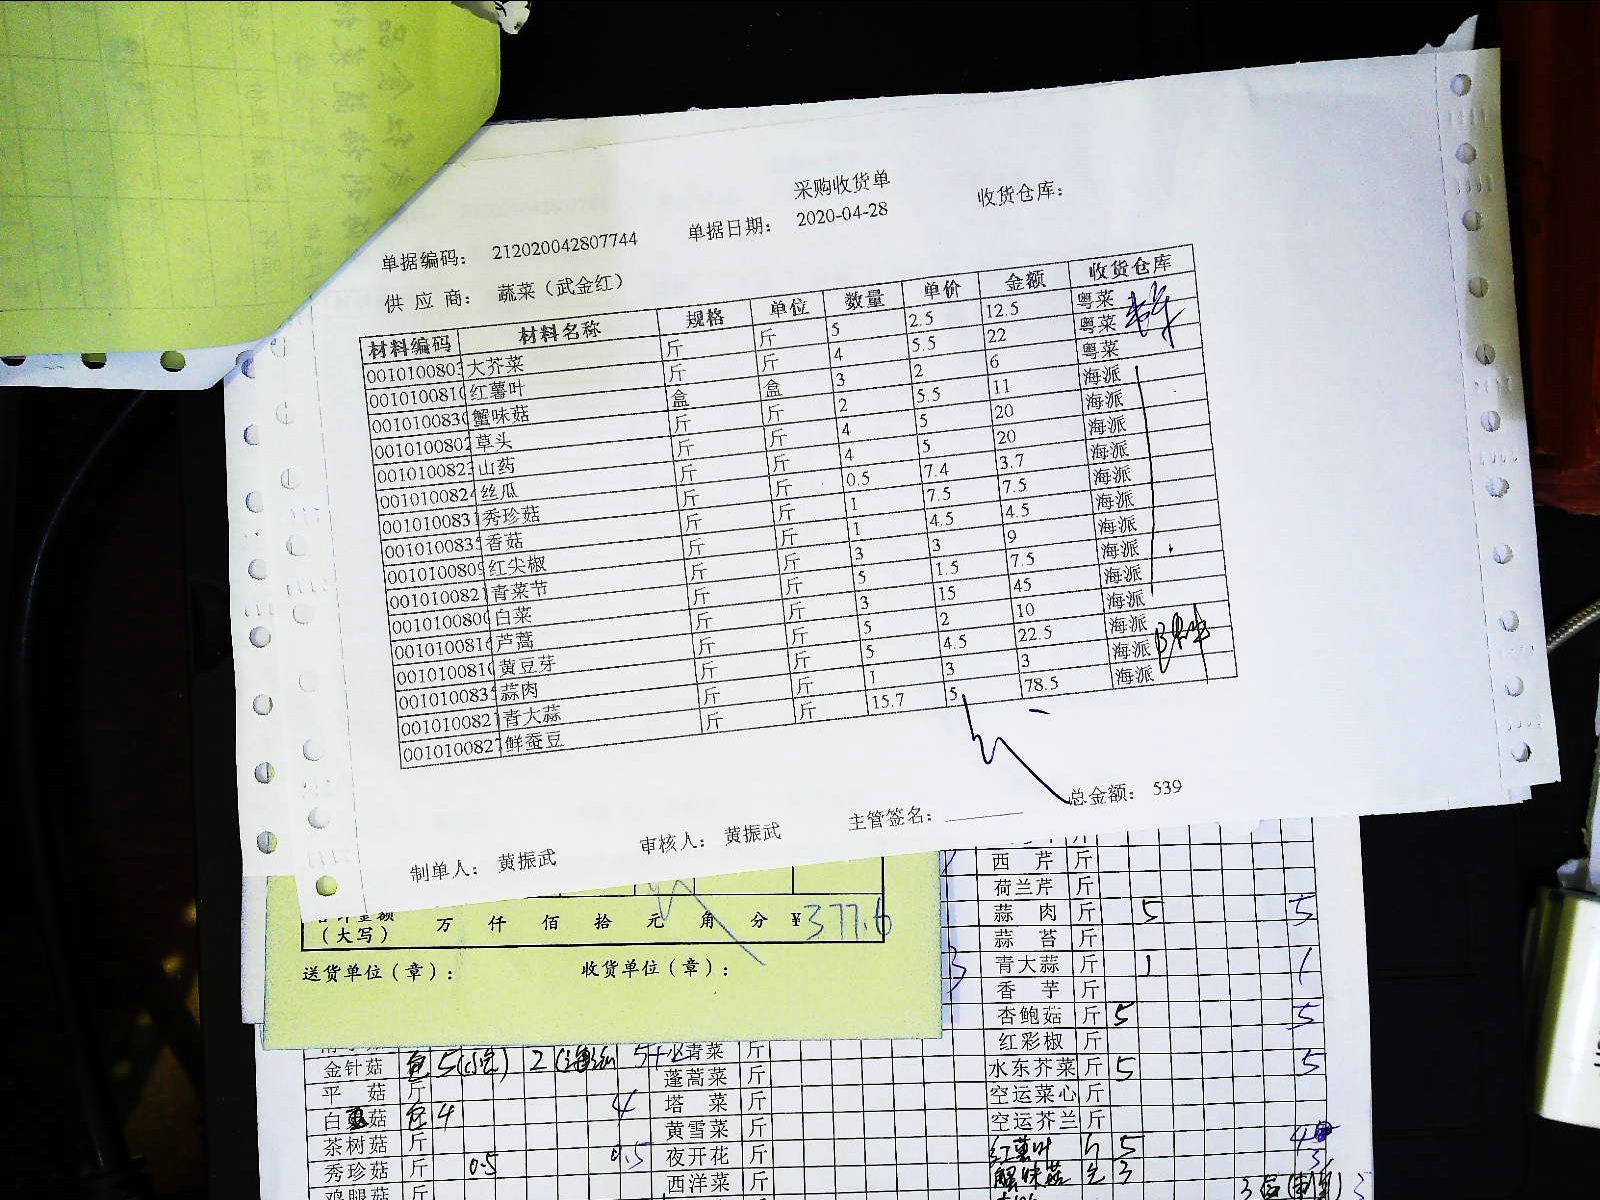 采购收货单
单据编码： 212020042807744 单据日期： 2020-04-28 收货仓库：
供 应 商： 蔬菜（武金红）
材料编码 材料名称 规格 单位 数量 单价 金额 收货仓库
0010100803 大芥菜 斤 斤 5 2.5 12.5 粤菜
001010081 红薯叶 斤 斤 4 5.5 22 粤菜
001010083 蟹味菇 盒 盒 3 2 6 粤菜
0010100802 草头 斤 斤 2 5.5 11 海派
0010100823 山药 斤 斤 4 5 20 海派
0010100824 丝瓜 斤 斤 4 5 20 海派
0010100831 秀珍菇 斤 斤 0.5 7.4 3.7 海派
0010100835 香菇 斤 斤 1 7.5 7.5 海派
0010100809 红尖椒 斤 斤 1 4.5 4.5 海派
0010100821 青菜节 斤 斤 3 3 9 海派
001010080 白菜 斤 斤 5 1.5 7.5 海派
0010100814 芦蒿 斤 斤 3 15 45 海派
001010081 黄豆芽 斤 斤 5 2 10 海派
0010100835 蒜肉 斤 斤 5 4.5 22.5 海派
0010100821 青大蒜 斤 斤 1 3 3 海派
0010100827 鲜蚕豆 斤 斤 15.7 5 78.5 海派
总金额： 539
制单人： 黄振武 审核人： 黄振武 主管签名：
（大写） 万 仟 佰 拾 元 角 分 ¥377.6
送货单位（章）： 收货单位（章）：
西 芹 斤
荷兰芹 斤
蒜 肉 斤 5 5
蒜 苔 斤
青大蒜 斤 1 1
香 芋 斤
杏鲍菇 斤 5 5
红彩椒 斤
水东芥菜 斤 5 5
空运菜心 斤
空运芥兰 斤
红薯叶 斤 5
蟹味菇 3
金针菇 包 5 2
平 菇 斤
白 菇 包 4 4
茶树菇 斤
秀珍菇 斤 0.5 0.5
鸡腿菇 斤
青菜 斤
蓬蒿菜 斤
塔 菜 斤
黄雪菜 斤
夜开花 斤
西洋菜 斤